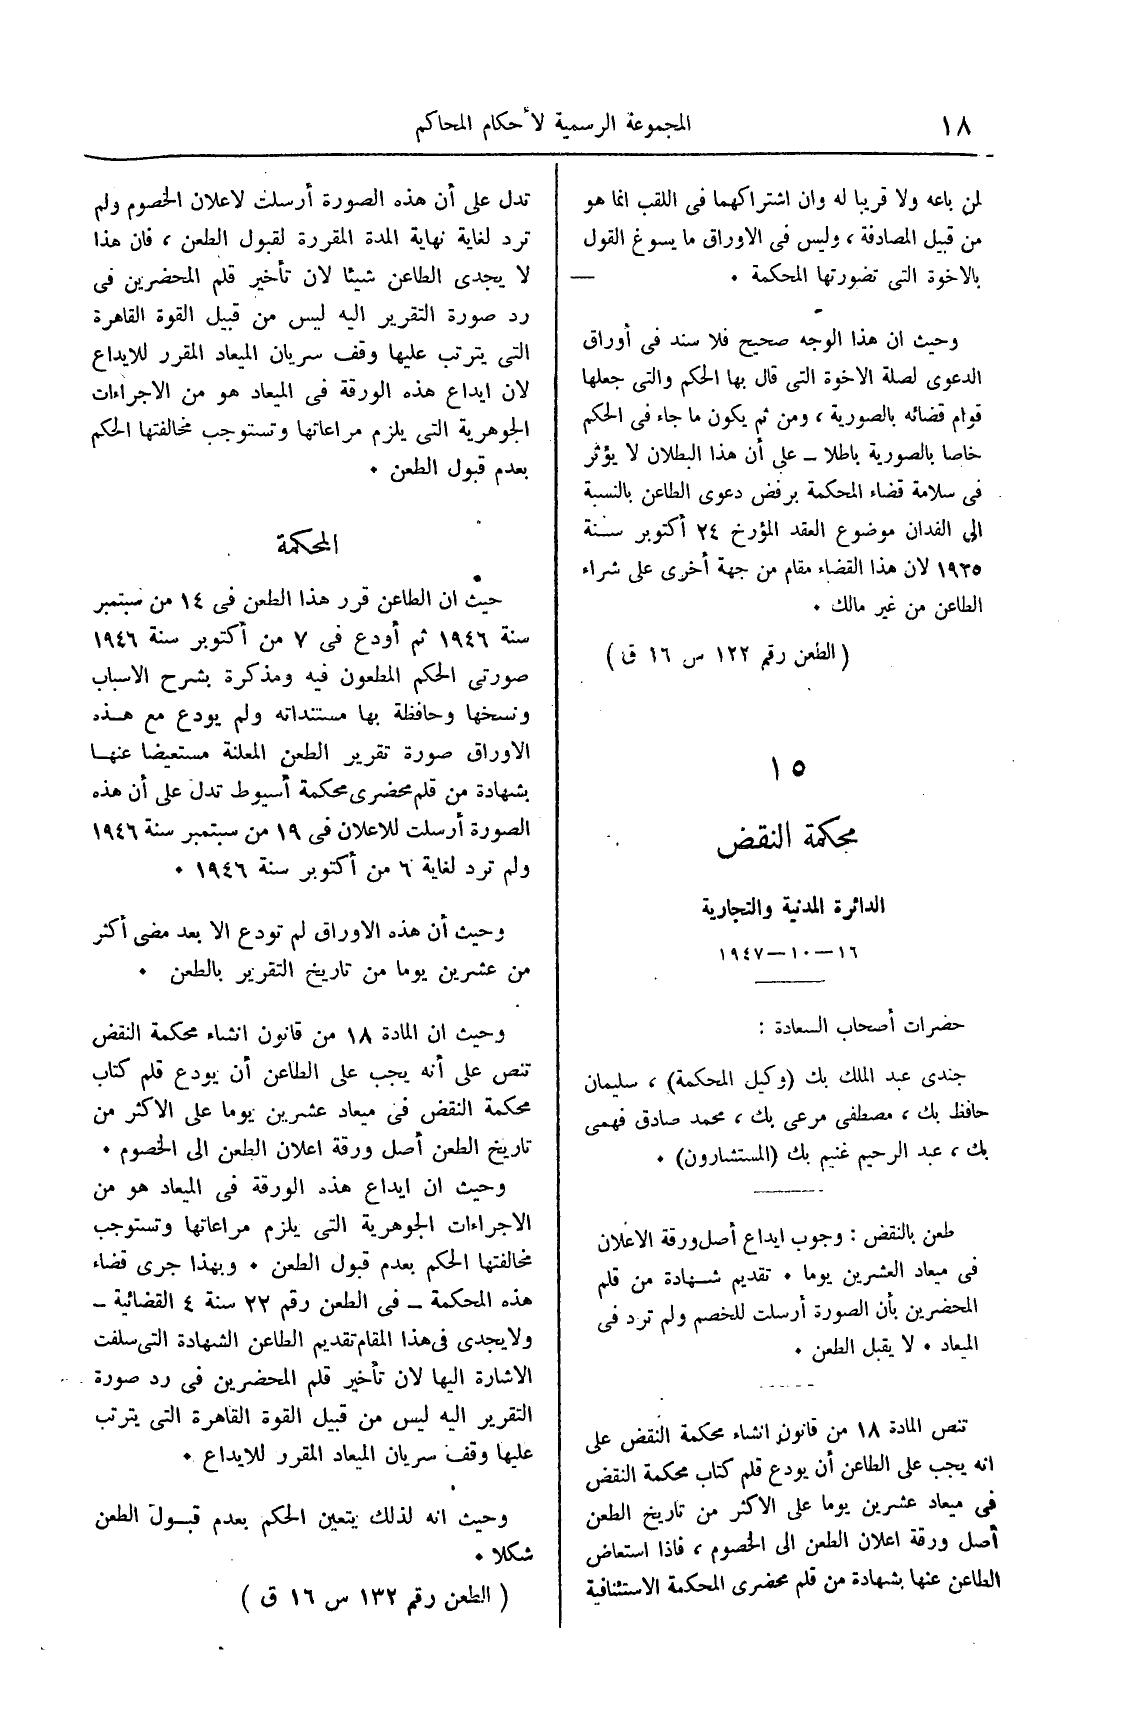 ١٨
المجموعة الرسمية لأحكام المحاكم
لمن باعه ولا قريبا له وان اشتراكهما فى اللقب انما هو
من قبيل المصادفة ، وليس فى الاوراق ما يسوغ القول
بالاخوة التى تضورتها المحكمة ٠
وحيث ان هذا الوجه صحيح فلا سند فى أوراق
الدعوى لصلة الاخوة التى قال بها الحكم والتى جعلها
قوام قضائه بالصورية ، ومن ثم يكون ما جاء فى الحكم
خاصا بالصورية باطلا ـ على أن هذا البطلان لا يؤثر
فى سلامة قضاء المحكمة برفض دعوى الطاعن بالنسبة
الى الفدان موضوع العقد المؤرخ ٢٤ أكتوبر سنة
١٩٣٥ لان هذا القضاء مقام من جهة أخرى على شراء
الطاعن من غير مالك ٠
( الطعن رقم ١٢٢ س ١٦ ق )
١٥
محكمة النقض
الدائرة المدنية والتجارية
١٦—١٠—١٩٤٧
حضرات أصحاب السعادة :
جندى عبد الملك بك (وكيل المحكمة) ، سليمان
حافظ بك ، مصطفى مرعى بك ، محمد صادق فهمى
بك ، عبد الرحيم غنيم بك (المستشارون) ٠
طعن بالنقض : وجوب ايداع أصل ورقة الاعلان
فى ميعاد العشرين يوما ٠ تقديم شهادة من قلم
المحضرين بأن الصورة أرسلت للخصم ولم ترد فى
الميعاد ٠ لا يقبل الطعن ٠
تنص المادة ١٨ من قانون انشاء محكمة النقض على
انه يجب على الطاعن أن يودع قلم كتاب محكمة النقض
فى ميعاد عشرين يوما على الاكثر من تاريخ الطعن
أصل ورقة اعلان الطعن الى الخصوم ، فاذا استعاض
الطاعن عنها بشهادة من قلم محضرى المحكمة الاستئنافية
تدل على أن هذه الصورة أرسلت لاعلان الخصوم ولم
ترد لغاية نهاية المدة المقررة لقبول الطعن ، فان هذا
لا يجدى الطاعن شيئا لان تأخير قلم المحضرين فى
رد صورة التقرير اليه ليس من قبيل القوة القاهرة
التى يترتب عليها وقف سريان الميعاد المقرر للايداع
لان ايداع هذه الورقة فى الميعاد هو من الاجراءات
الجوهرية التى يلزم مراعاتها وتستوجب مخالفتها الحكم
بعدم قبول الطعن ٠
المحكمة
حيث ان الطاعن قرر هذا الطعن فى ١٤ من سبتمبر
سنة ١٩٤٦ ثم أودع فى ٧ من أكتوبر سنة ١٩٤٦
صورتى الحكم المطعون فيه ومذكرة بشرح الاسباب
ونسخها وحافظة بها مستنداته ولم يودع مع هذه
الاوراق صورة تقرير الطعن المعلنة مستعيضا عنها
بشهادة من قلم محضرى محكمة أسيوط تدل على أن هذه
الصورة أرسلت للاعلان فى ١٩ من سبتمبر سنة ١٩٤٦
ولم ترد لغاية ٦ من أكتوبر سنة ١٩٤٦ ٠
وحيث أن هذه الاوراق لم تودع الا بعد مضى أكثر
من عشرين يوما من تاريخ التقرير بالطعن ٠
وحيث ان المادة ١٨ من قانون انشاء محكمة النقض
تنص على أنه يجب على الطاعن أن يودع قلم كتاب
محكمة النقض فى ميعاد عشرين يوما على الاكثر من
تاريخ الطعن أصل ورقة اعلان الطعن الى الخصوم ٠
وحيث ان ايداع هذه الورقة فى الميعاد هو من
الاجراءات الجوهرية التى يلزم مراعاتها وتستوجب
مخالفتها الحكم بعدم قبول الطعن ٠ وبهذا جرى قضاء
هذه المحكمة ـ فى الطعن رقم ٢٢ سنة ٤ القضائية ـ
ولا يجدى فى هذا المقام تقديم الطاعن الشهادة التى سلفت
الاشارة اليها لان تأخير قلم المحضرين فى رد صورة
التقرير اليه ليس من قبيل القوة القاهرة التى يترتب
عليها وقف سريان الميعاد المقرر للايداع ٠
وحيث انه لذلك يتعين الحكم بعدم قبول الطعن
شكلا ٠
( الطعن رقم ١٣٢ س ١٦ ق )